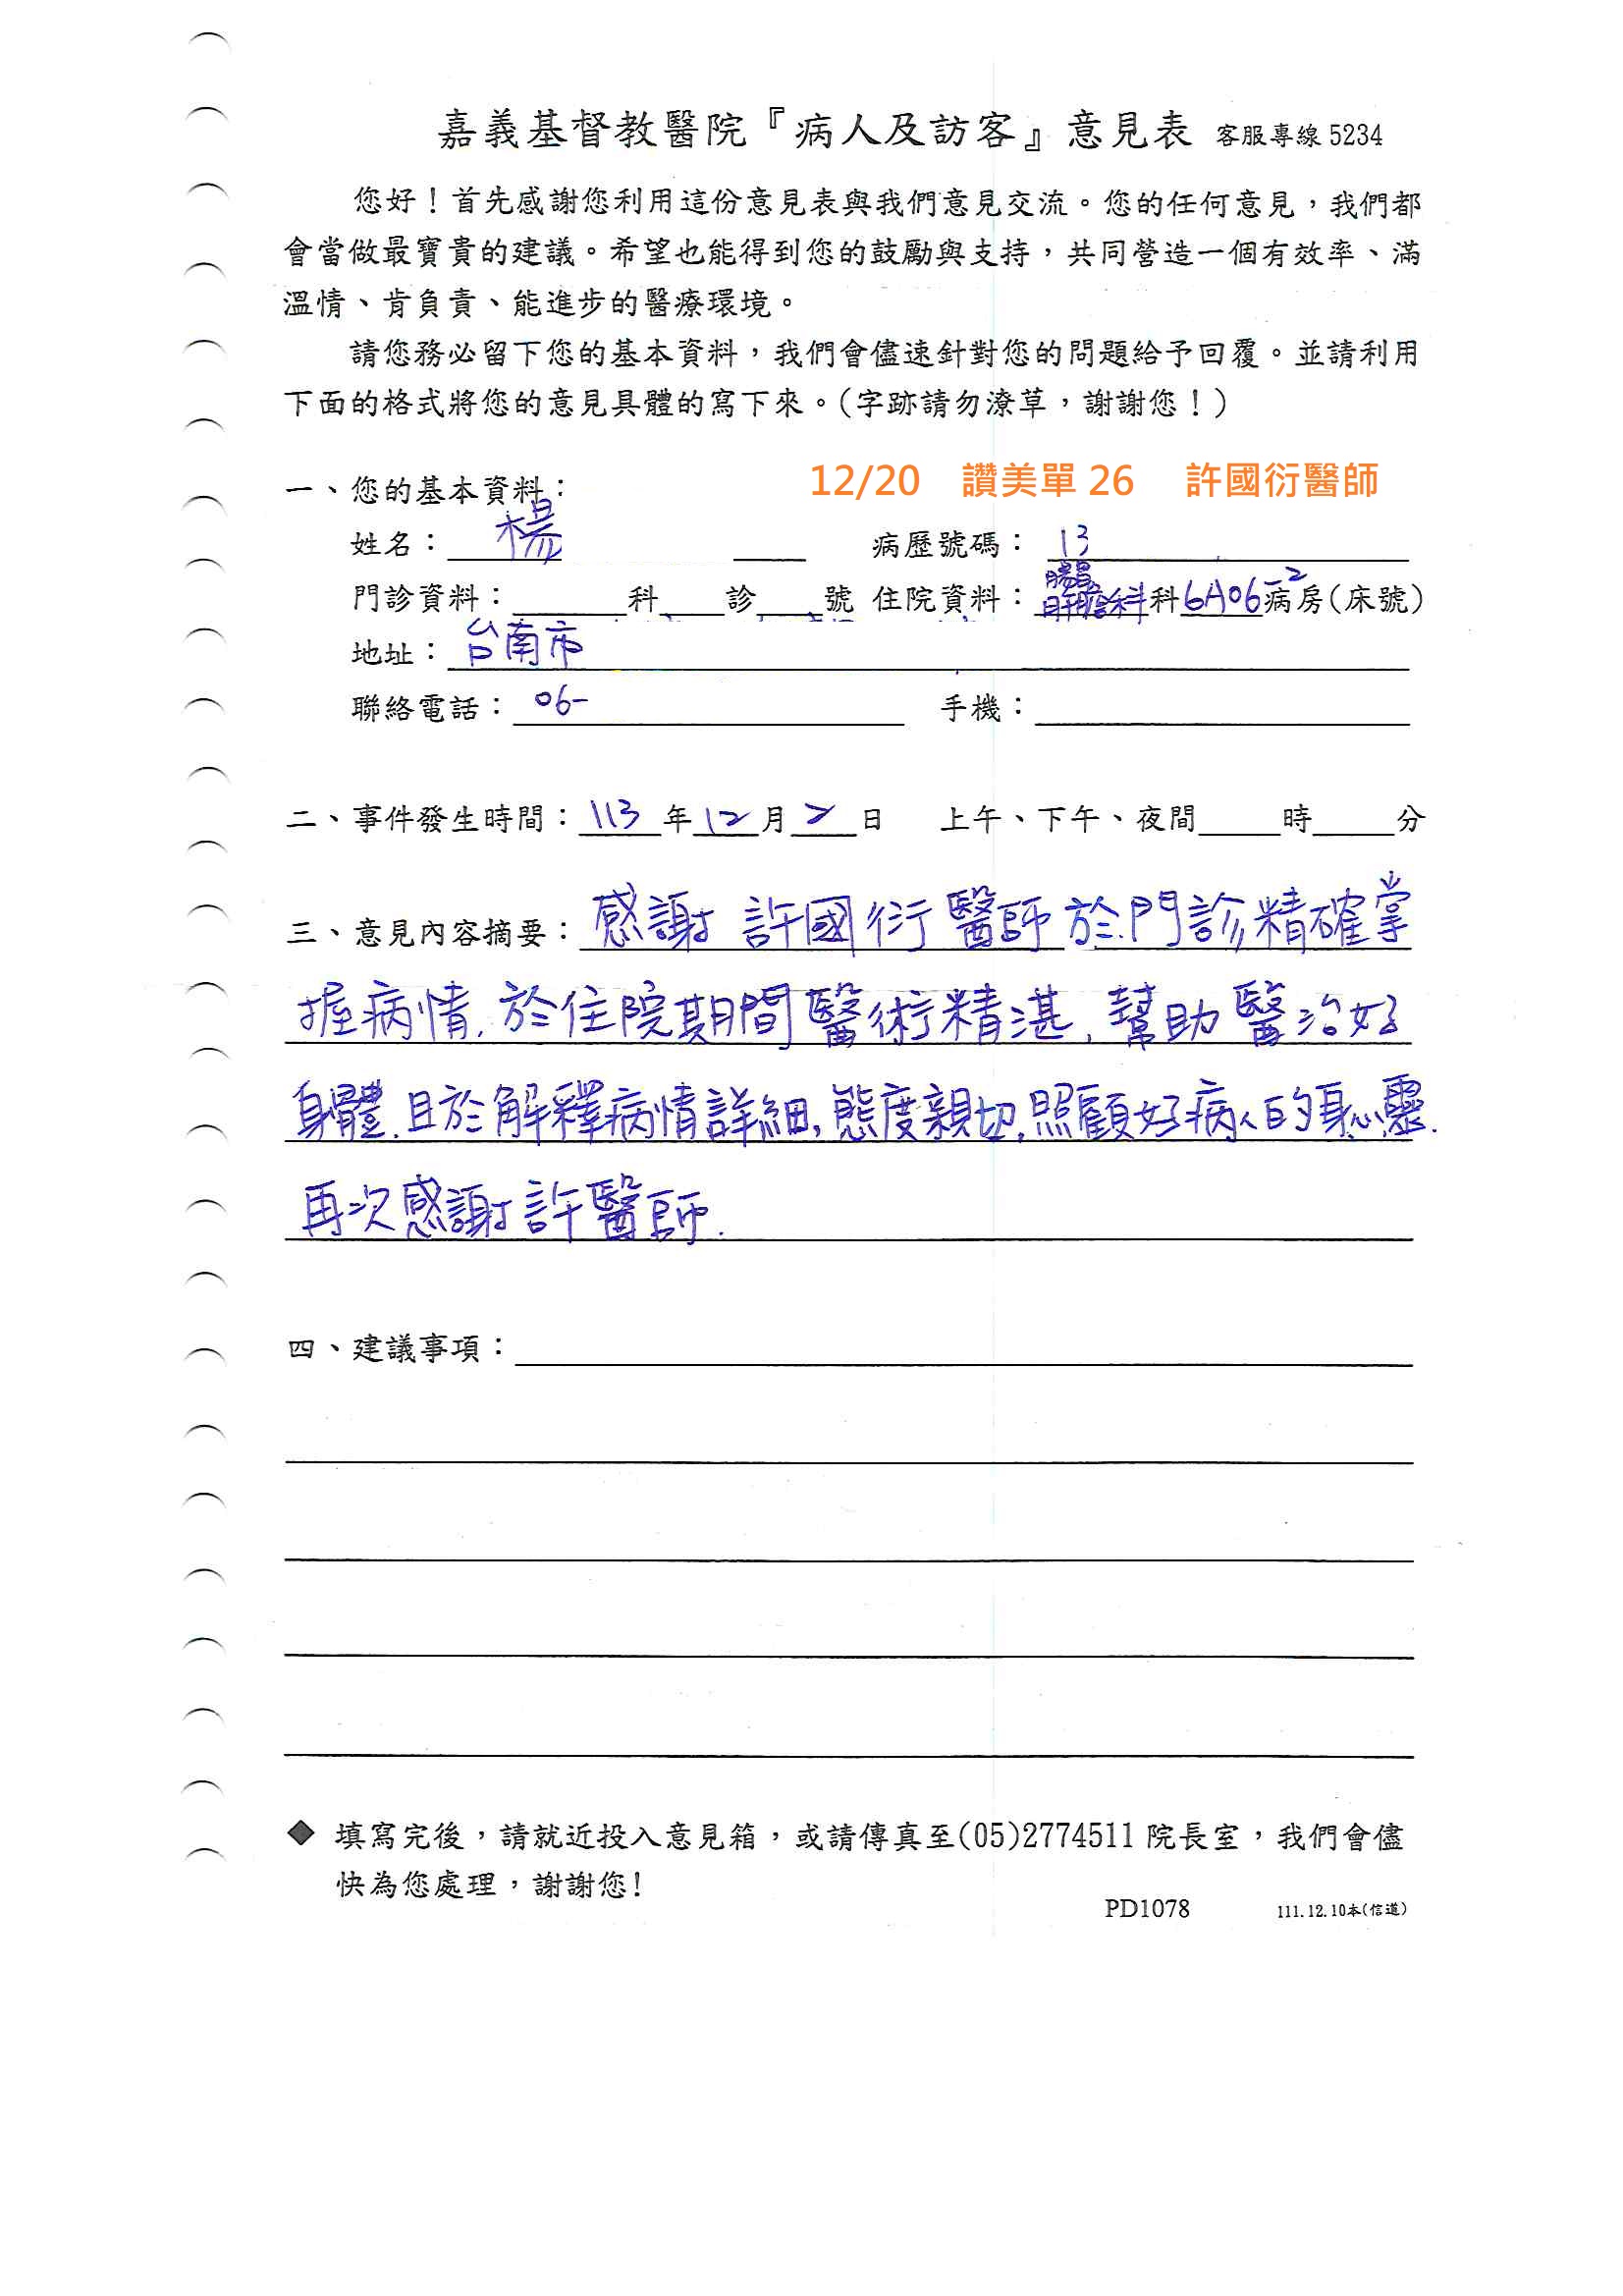 嘉義基督教醫院『病人及訪客』意見表 客服專線 5234
您好！首先感謝您利用這份意見表與我們意見交流。您的任何意見，我們都
會當做最寶貴的建議。希望也能得到您的鼓勵與支持，共同營造一個有效率、滿
溫情、肯負責、能進步的醫療環境。
請您務必留下您的基本資料，我們會儘速針對您的問題給予回覆。並請利用
下面的格式將您的意見具體的寫下來。(字跡請勿潦草，謝謝您！)
12/20 讚美單 26 許國衍醫師
一、您的基本資料：
姓名：楊 病歷號碼：13
門診資料：科 診 號 住院資料：腸胃肝膽科科6A06-2病房(床號)
地址：台南市
聯絡電話：06- 手機：
二、事件發生時間：113年12月2日 上午、下午、夜間 時 分
三、意見內容摘要：感謝 許國衍醫師於門診精確掌
握病情,於住院期間醫術精湛,幫助醫治好
身體,且於解釋病情詳細,態度親切,照顧好病人的身心靈.
再次感謝許醫師.
四、建議事項：
◆ 填寫完後，請就近投入意見箱，或請傳真至(05)2774511 院長室，我們會儘
快為您處理，謝謝您!
PD1078 111.12.10本(信道)